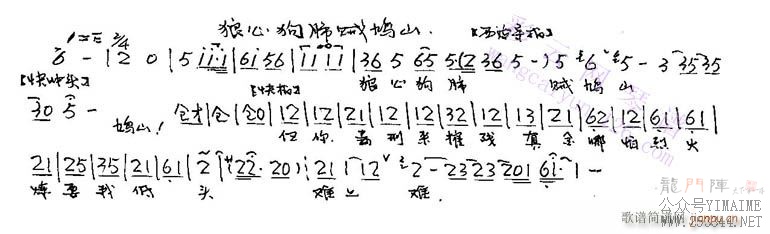 狼心狗肺贼鸠山.
1=E 2/4 【西皮导板】
6 - | 2 0 | 5 i i·i | 6i 56 | i i i i | 36 5 65 5(2 36 5 -) 5 6 5 - 3 35 35
狼心狗肺 贼鸠山
【快板】
30 5 - 仓才 | 仓 | 仓0 | 12 | 12 | 21 | 12 | 12 | 32 | 12 | 13 | 21 | 62 | 12 | 61 | 61 |
鸠山! 任你毒刑来摧残 真金哪怕烈火
21 | 25 | 35 | 21 | 61 | 2 | (22· 20) | 21 | 12 2 - 23 23 201 61· 1 -
炼要我低头 难上难.
龍門陣
公众号YIMAIME
歌谱简谱网 jianpu.cn
www.293844.NET